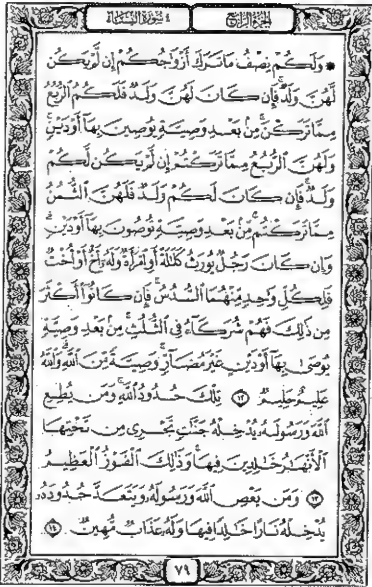 سورة النساء ٤
الجزء الرابع
* وَلَكُمْ نِصْفُ مَا تَرَكَ أَزْوَٰجُكُمْ إِن لَّمْ يَكُن
لَّهُنَّ وَلَدٌ ۚ فَإِن كَانَ لَهُنَّ وَلَدٌ فَلَكُمُ ٱلرُّبُعُ
مِمَّا تَرَكْنَ ۚ مِنۢ بَعْدِ وَصِيَّةٍ يُوصِينَ بِهَآ أَوْ دَيْنٍ ۚ
وَلَهُنَّ ٱلرُّبُعُ مِمَّا تَرَكْتُمْ إِن لَّمْ يَكُن لَّكُمْ
وَلَدٌ ۚ فَإِن كَانَ لَكُمْ وَلَدٌ فَلَهُنَّ ٱلثُّمُنُ
مِمَّا تَرَكْتُم ۚ مِّنۢ بَعْدِ وَصِيَّةٍ تُوصُونَ بِهَآ أَوْ دَيْنٍ ۗ
وَإِن كَانَ رَجُلٌ يُورَثُ كَلَٰلَةً أَوِ ٱمْرَأَةٌ وَلَهُۥٓ أَخٌ أَوْ أُخْتٌ
فَلِكُلِّ وَٰحِدٍ مِّنْهُمَا ٱلسُّدُسُ ۚ فَإِن كَانُوٓا۟ أَكْثَرَ
مِن ذَٰلِكَ فَهُمْ شُرَكَآءُ فِى ٱلثُّلُثِ ۚ مِنۢ بَعْدِ وَصِيَّةٍ
يُوصَىٰ بِهَآ أَوْ دَيْنٍ غَيْرَ مُضَآرٍّ ۚ وَصِيَّةً مِّنَ ٱللَّهِ ۗ وَٱللَّهُ
عَلِيمٌ حَلِيمٌ ١٢ تِلْكَ حُدُودُ ٱللَّهِ ۚ وَمَن يُطِعِ
ٱللَّهَ وَرَسُولَهُۥ يُدْخِلْهُ جَنَّٰتٍ تَجْرِى مِن تَحْتِهَا
ٱلْأَنْهَٰرُ خَٰلِدِينَ فِيهَا ۚ وَذَٰلِكَ ٱلْفَوْزُ ٱلْعَظِيمُ
١٣ وَمَن يَعْصِ ٱللَّهَ وَرَسُولَهُۥ وَيَتَعَدَّ حُدُودَهُۥ
يُدْخِلْهُ نَارًا خَٰلِدًا فِيهَا وَلَهُۥ عَذَابٌ مُّهِينٌ ١٤
٧٩